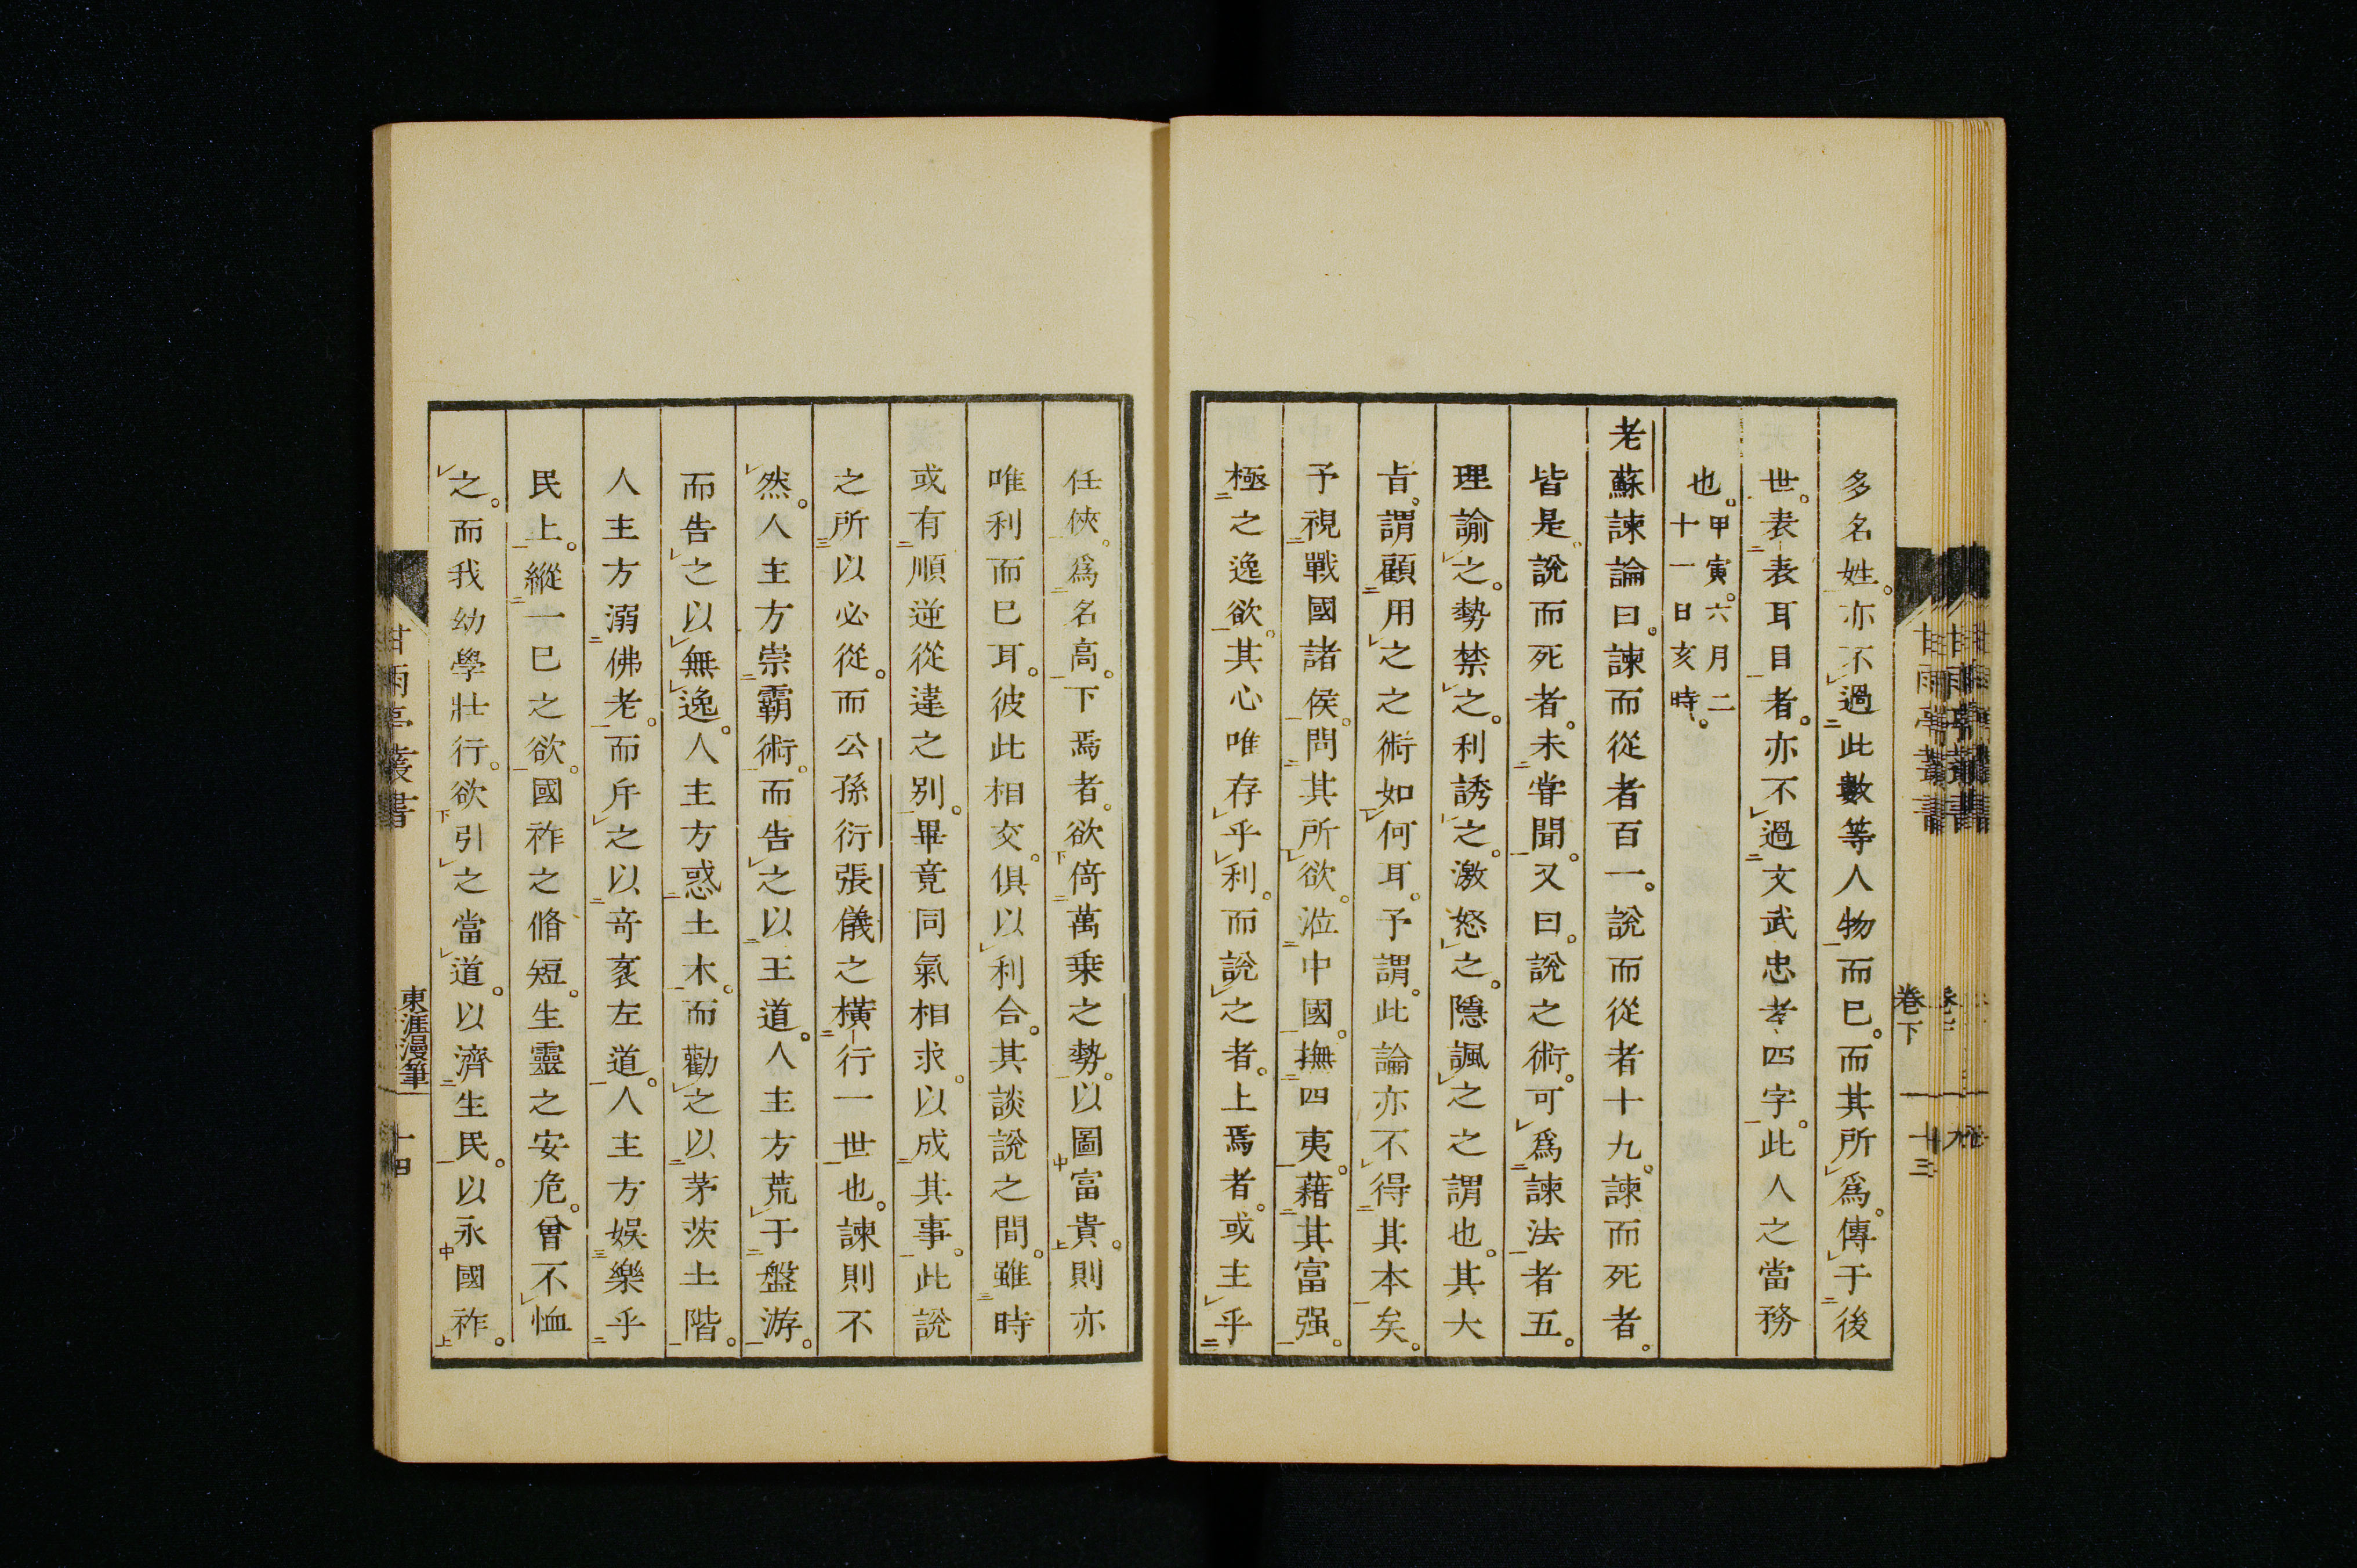 多名姓。亦不過此數等人物而已。而其所爲。傳于後
世。表表耳目者。亦不過文武忠孝四字。此人之當務
也。甲寅。六月二
十一日亥時。
老蘇諫論曰。諫而從者百一。說而從者十九。諫而死者。
皆是。說而死者。未甞聞。又曰。說之術。可爲諫法者五。
理諭之。勢禁之。利誘之。激怒之。隱諷之之謂也。其大
旨。謂顧用之之術如何耳。予謂。此論亦不得其本矣。
予視戰國諸侯。問其所欲。涖中國。撫四夷。藉其富强。
極之逸欲。其心唯存乎利。而說之者。上焉者。或主乎
任俠。爲名高。下焉者。欲倚萬乗之勢。以圖富貴。則亦
唯利而已耳。彼此相交。俱以利合。其談說之間。雖時
或有順逆從違之别。畢竟同氣相求。以成其事。此說
之所以必從。而公孫衍張儀之橫行一世也。諫則不
然。人主方崇霸術。而告之以王道。人主方荒于盤游。
而告之以無逸。人主方惑土木。而勸之以茅茨土階。
人主方溺佛老。而斥之以竒衺左道。人主方娛樂乎
民上。縱一已之欲。國祚之脩短。生靈之安危。曾不恤
之。而我幼學壯行。欲引之當道。以濟生民。以永國祚。
甘雨亭叢書 卷下 十三
甘雨亭叢書 東涯漫筆 十四